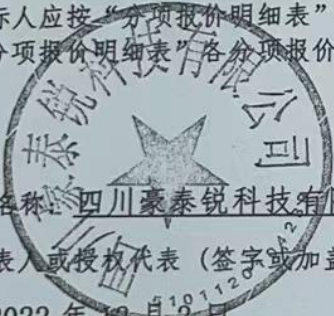 标人应按“分项报价明细表”
分项报价明细表”各分项报价
名称：四川豪泰锐科技有限
表人或授权代表（签字或加盖
2022 年 12 月 2 日
四川豪泰锐科技有限公司
5101120